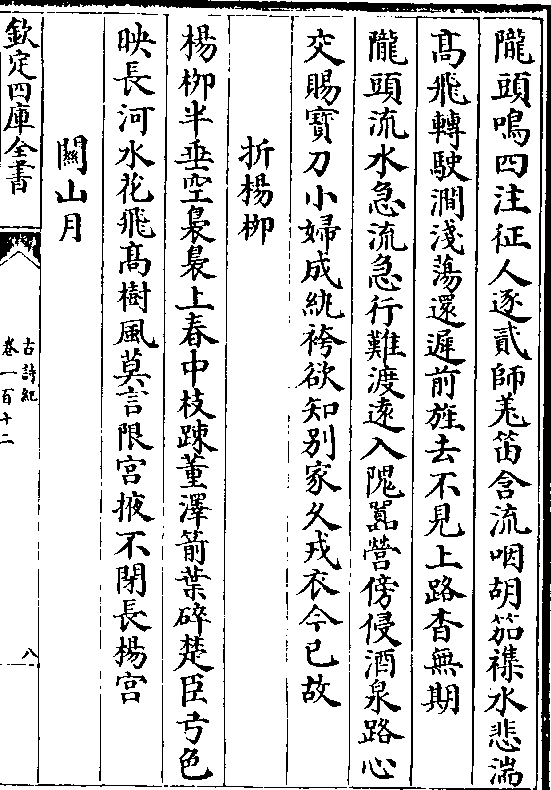 隴頭鳴四注征人逐貳師羌笛含流咽胡笳襍水悲湍
髙飛轉駛澗淺蕩還遲前旌去不見上路杳無期
隴頭流水急流急行難渡遠入隗嚻營傍侵酒泉路心
交賜寶刀小婦成紈袴欲知别家乆戎衣今已故
折楊栁
楊栁半垂空裊裊上春中枝踈董澤箭葉碎楚臣弓色
映長河水花飛髙樹風莫言限宫掖不閉長楊宫
關山月
欽定四庫全書
古詩紀
卷一百十二
八